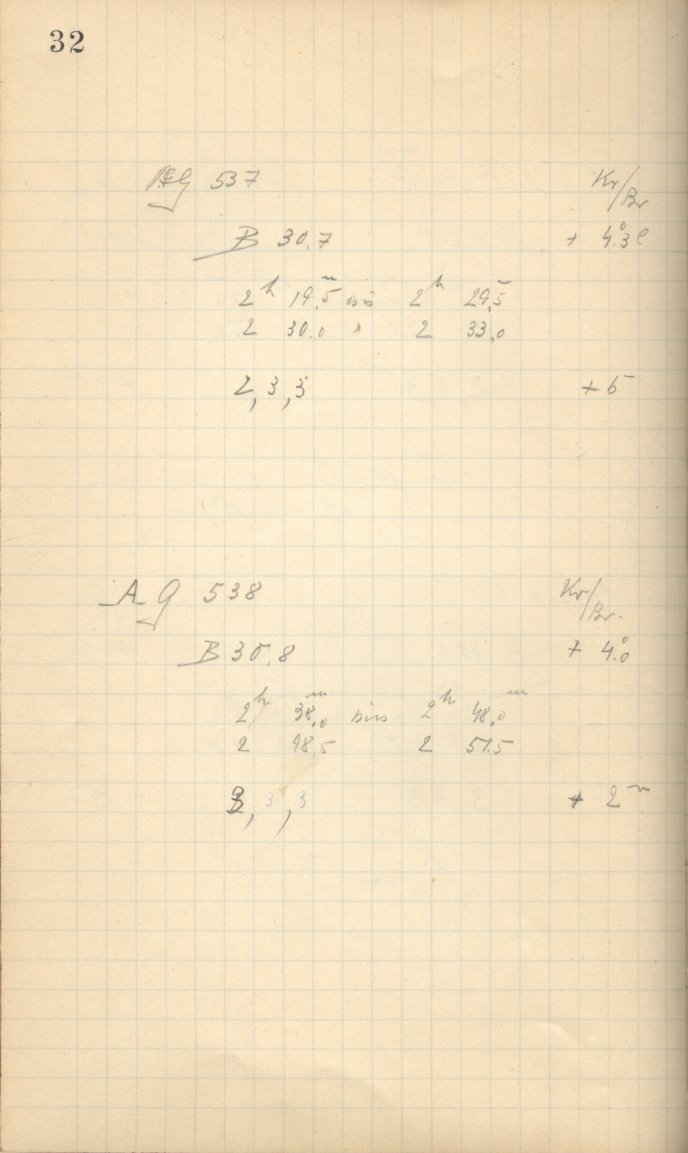 32
AG 537 Kr/Br
B 30.7 + 4°.3 C
2h 19.5m bis 2h 29.5
2 30.0 " 2 33.0
2, 3, 3 + 5
AG 538 Kr/Br.
B 30.8 + 4°.0
2h 38.0m bis 2h 48.0m
2 48.5 2 51.5
3, 3, 3 + 2m